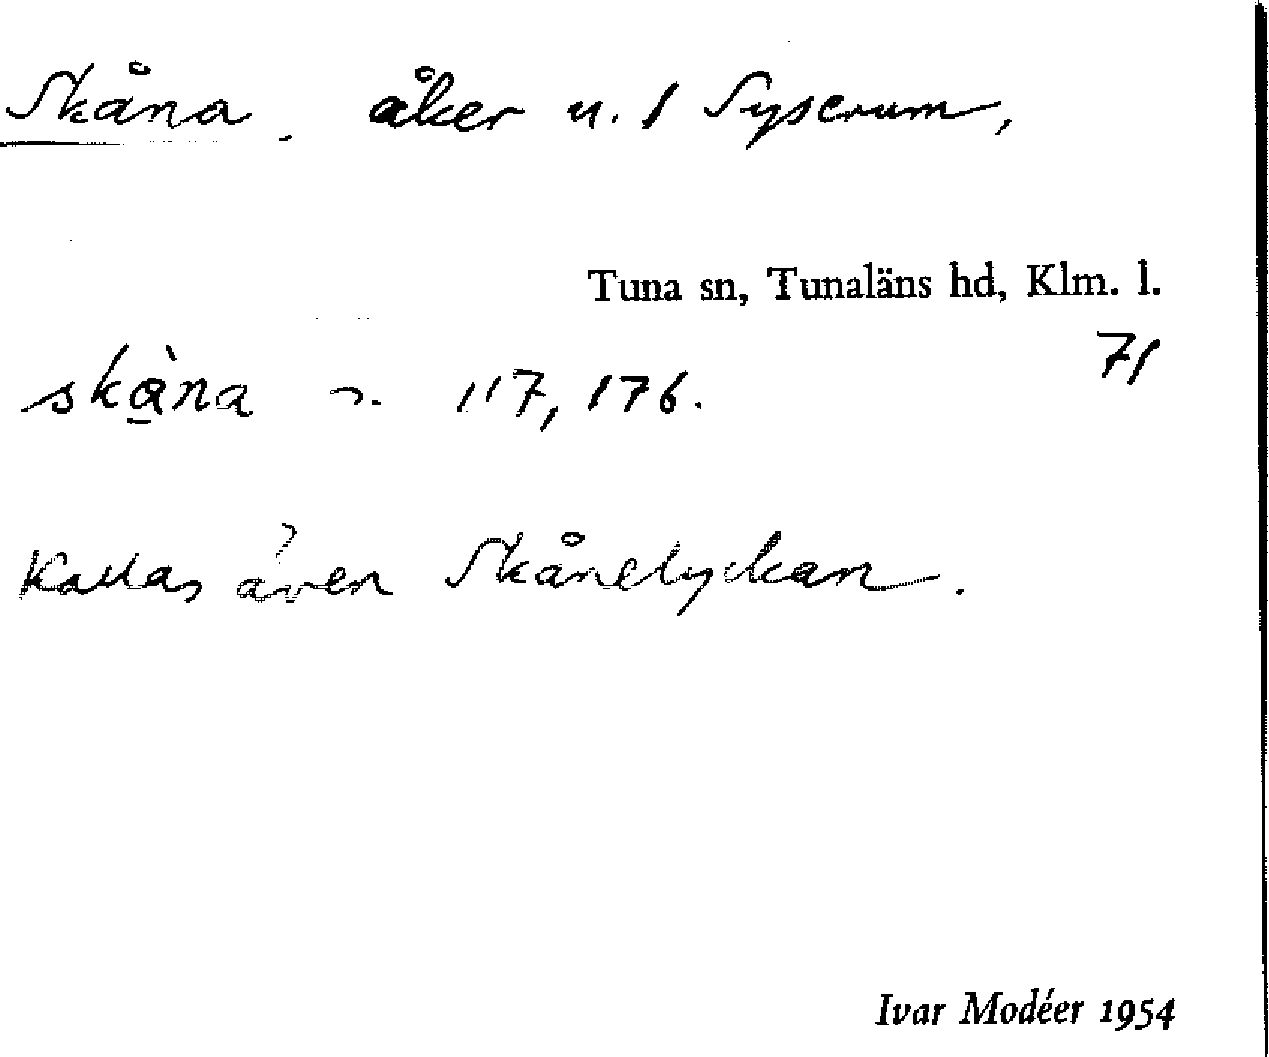 Skåna, åker u. 1 Syserum,
Tuna sn, Tunaläns hd, Klm. l.
71
skàna 117, 176.
Kallas även Skånelyckan.
Ivar Modéer 1954